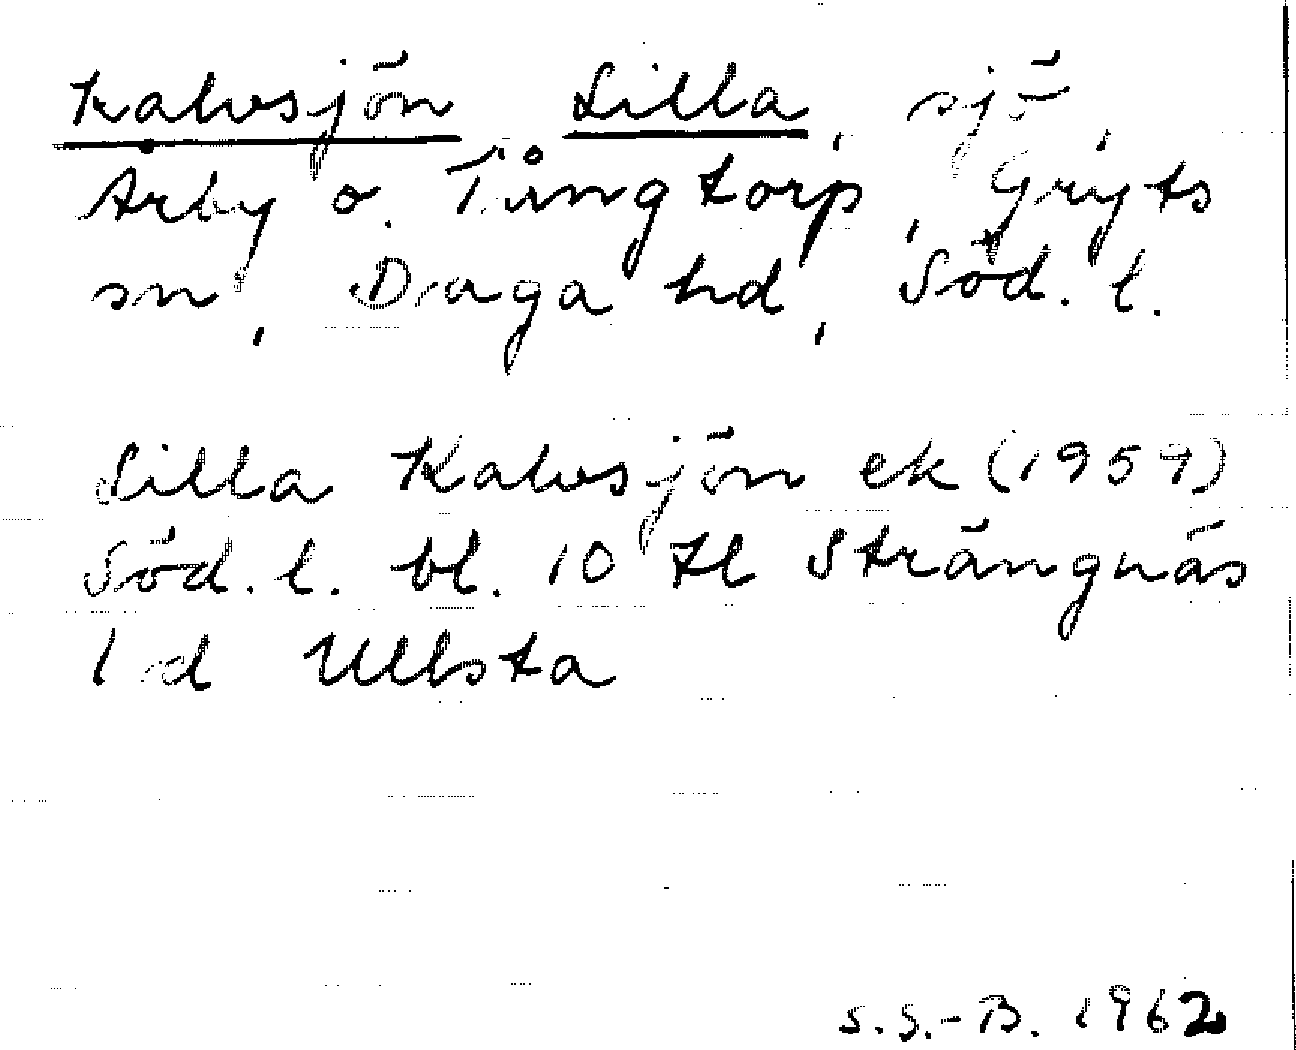 Kalvsjön Lilla, sjö,
Årby o. Tångtorp, Gryts
sn, Daga hd, Söd. l.
Lilla Kalvsjön ek (1957)
Söd. l. bl. 10 tl Strängnäs
1d Ullsta
S.S.-B. 1962